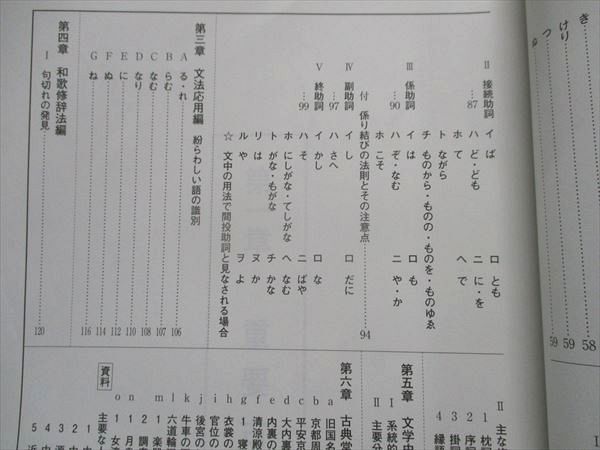 き……58
けり……59
つ……59
Ⅱ 接続助詞……87
イ ば ロ とも
ハ ど・ども ニ に・を
ホ て ヘ で
ト ながら
チ ものから・ものの・ものを・ものゆゑ
Ⅲ 係助詞……90
イ は ロ も
ハ ぞ・なむ ニ や・か
ホ こそ
付 係り結びの法則とその注意点……94
Ⅳ 副助詞……97
イ し ロ だに
ハ さへ
Ⅴ 終助詞……99
イ かし ロ な
ハ そ ニ ばや
ホ にしがな・てしがな ヘ なむ
ト がな・もがな チ かな
リ は ヌ か
ル や ヲ よ
☆ 文中の用法で間投助詞と見なされる場合
第三章 文法応用編 紛らわしい語の識別
A る・れ……106
B らむ……107
C なむ……108
D なり……110
E に……112
F ぬ……114
G ね……116
第四章 和歌修辞法編
Ⅰ 句切れの発見……120
Ⅱ 主な
1 枕詞
2 序詞
3 掛詞
4 縁語
第五章 文学史
Ⅰ 系統的
Ⅱ 主要
第六章 古典常
a 旧国名
b 京都周
c 平安京
d 大内裏
e 内裏の
f 清涼殿
g 1 寝
h 衣裳の
i 官位の
j 後宮の
k 牛車の
l 六道輪
m 1 楽
2 調
n 1 月
o 1 女
資料
主要な